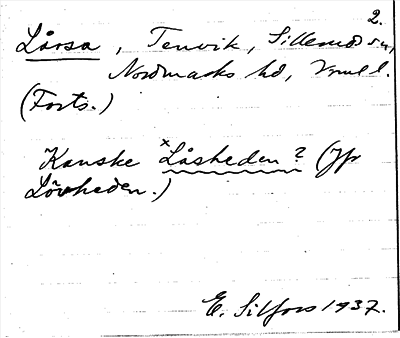 2.
Lårsa, Tenvik, Sillemåls sn,
Nordmarks hd, Vrml l.
(Forts.)
Kanske ˣLåsheden? (Jfr
Lövheden.)
E. Silfors 1937.